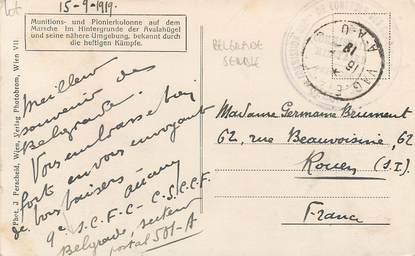 15-9-1919.
Munitions- und Pionierkolonne auf dem
Marsche Im Hintergrunde der Avalahügel
und seine nähere Umgebung, bekannt durch
die heftigen Kämpfe.
BELGRADE
SERBIE
Meilleur
souvenir de
Belgrade.
Vous embrasse bien
fort en vous envoyant
de bons baisers
9e S.C.F.C - C.S.C.C.F.
Belgrade, secteur
postal 501-A
Madame Germaine Brument
62, rue Beauvoisine, 62
Rouen (S.I.)
France
Phot. J. Perscheid, Wien, Verlag Photobrom, Wien VII